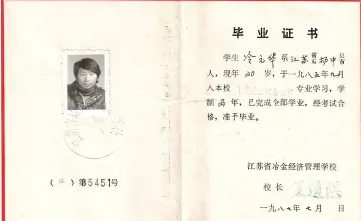 毕业证书
学生 冷 华 系江苏省扬中县
人，现年20岁，于一九八五年九月
入本校 专业学习，学
制 年，已完成全部学业，经考试合
格，准予毕业。
江苏省冶金经济管理学校
校长
一九八七年七月 日
第5451号